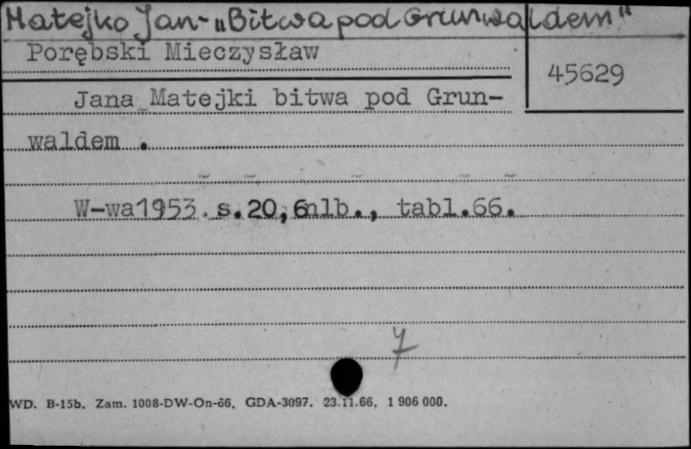 Matejko Jan - „Bitwa pod Grunwaldem"
Porębski Mieczysław
45629
Jana Matejki bitwa pod Grun-
waldem .
W-wa1953. s.20,6nlb., tabl.66.
7
WD. B-15b. Zam. 1008-DW-On-66. GDA-3097. 23.11.66. 1 906 000.